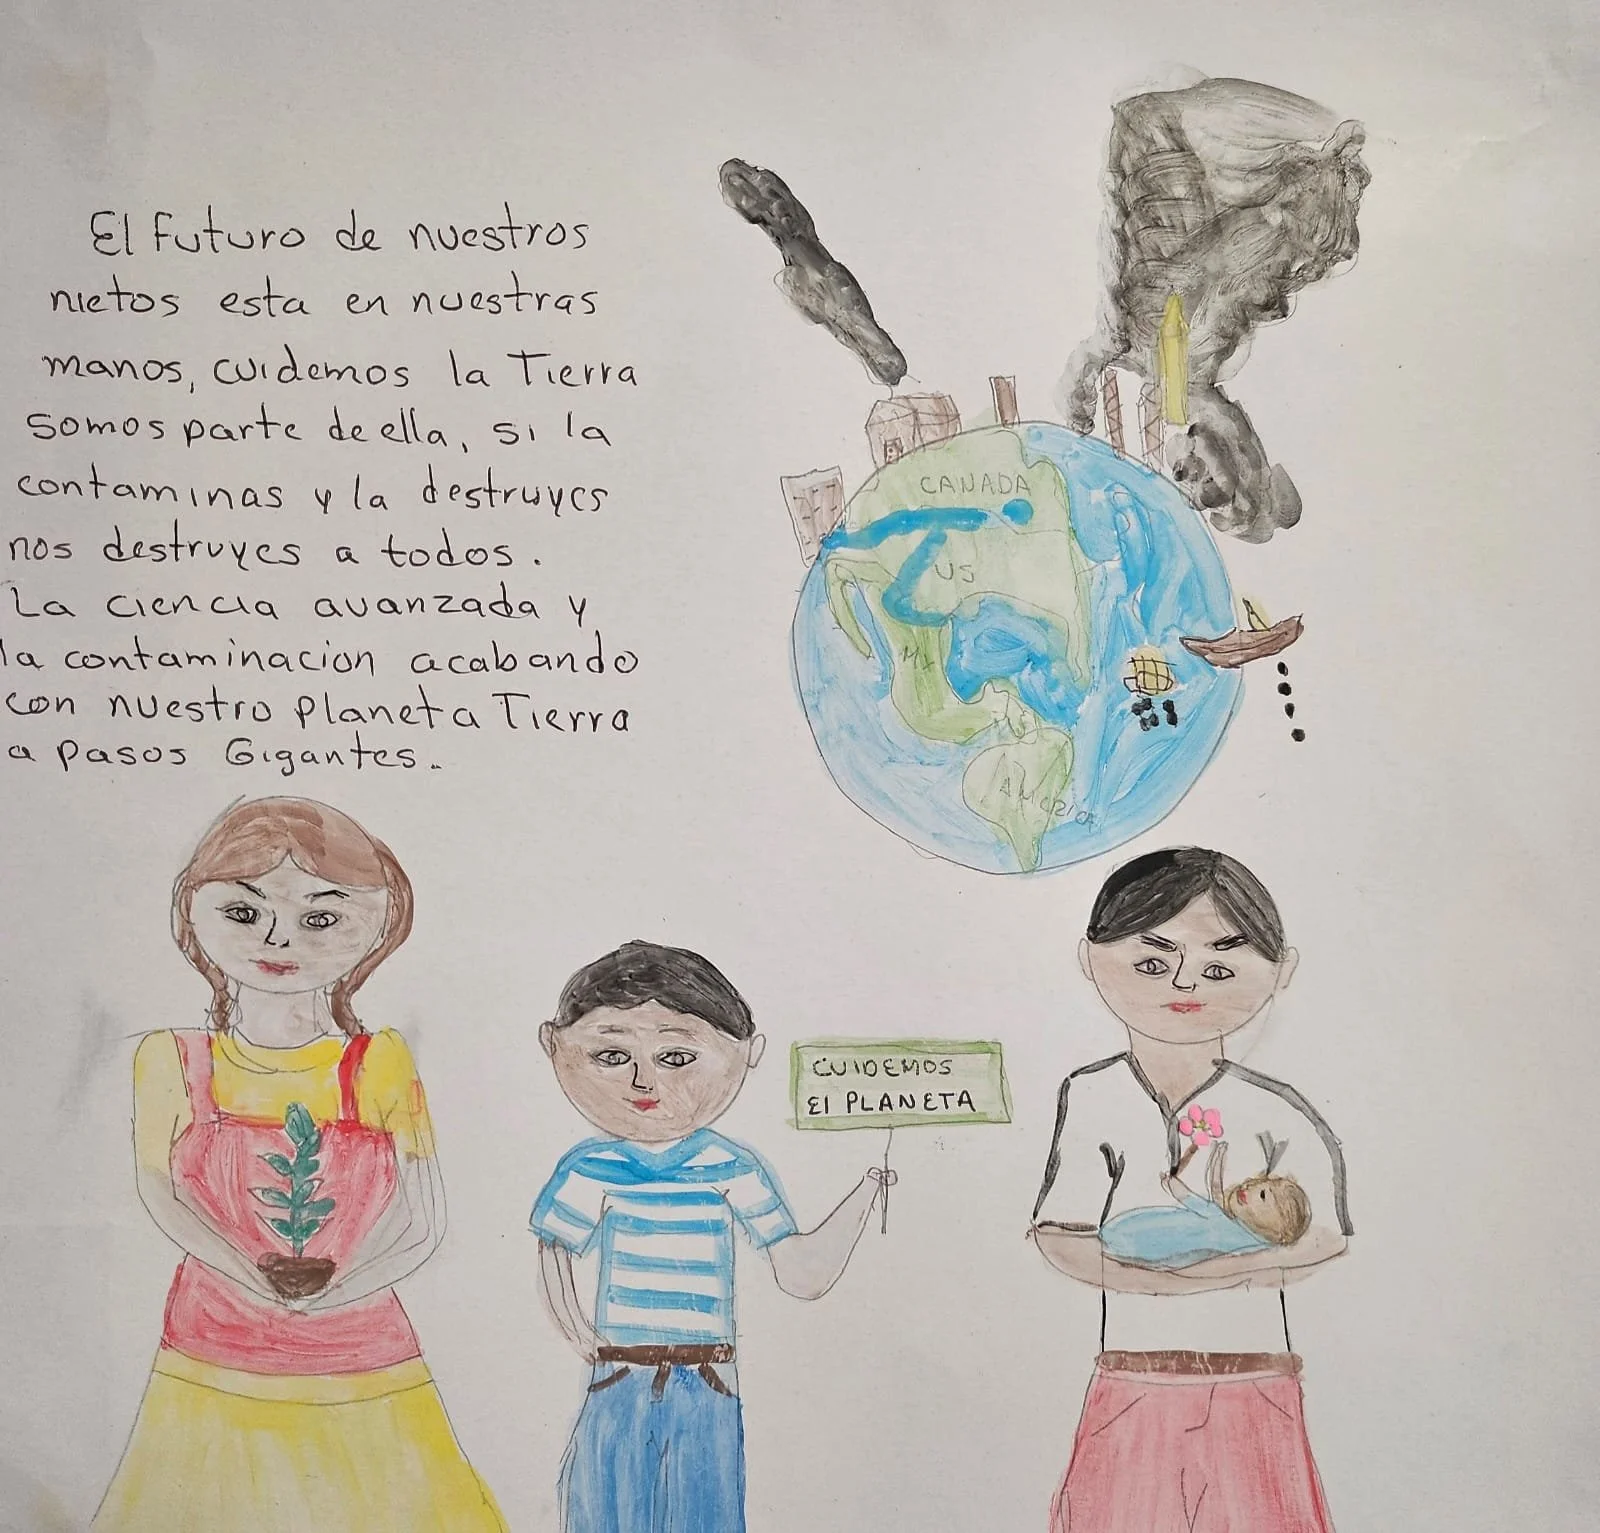 El Futuro de nuestros
nietos esta en nuestras
manos, cuidemos la Tierra
somos parte de ella, si la
contaminas y la destruyes
nos destruyes a todos.
La ciencia avanzada y
la contaminacion acabando
con nuestro planeta Tierra
a pasos Gigantes.
CANADA
US
MX
AMERICA
CUIDEMOS
El PLANETA